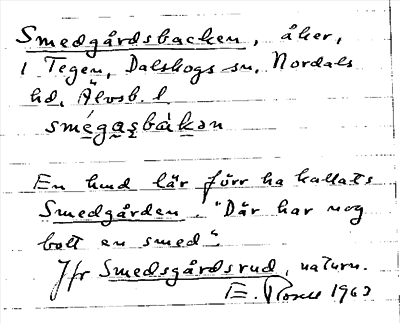 Smedgårdsbacken, åker,
i Tegen, Dalskogs sn, Nordals
hd, Älvsb. l
smégasbàkən
En hmd lär förr ha kallats
Smedgården. "Där har nog
bott en smed".
Jfr Smedsgårdsrud, naturn.
E. 1963